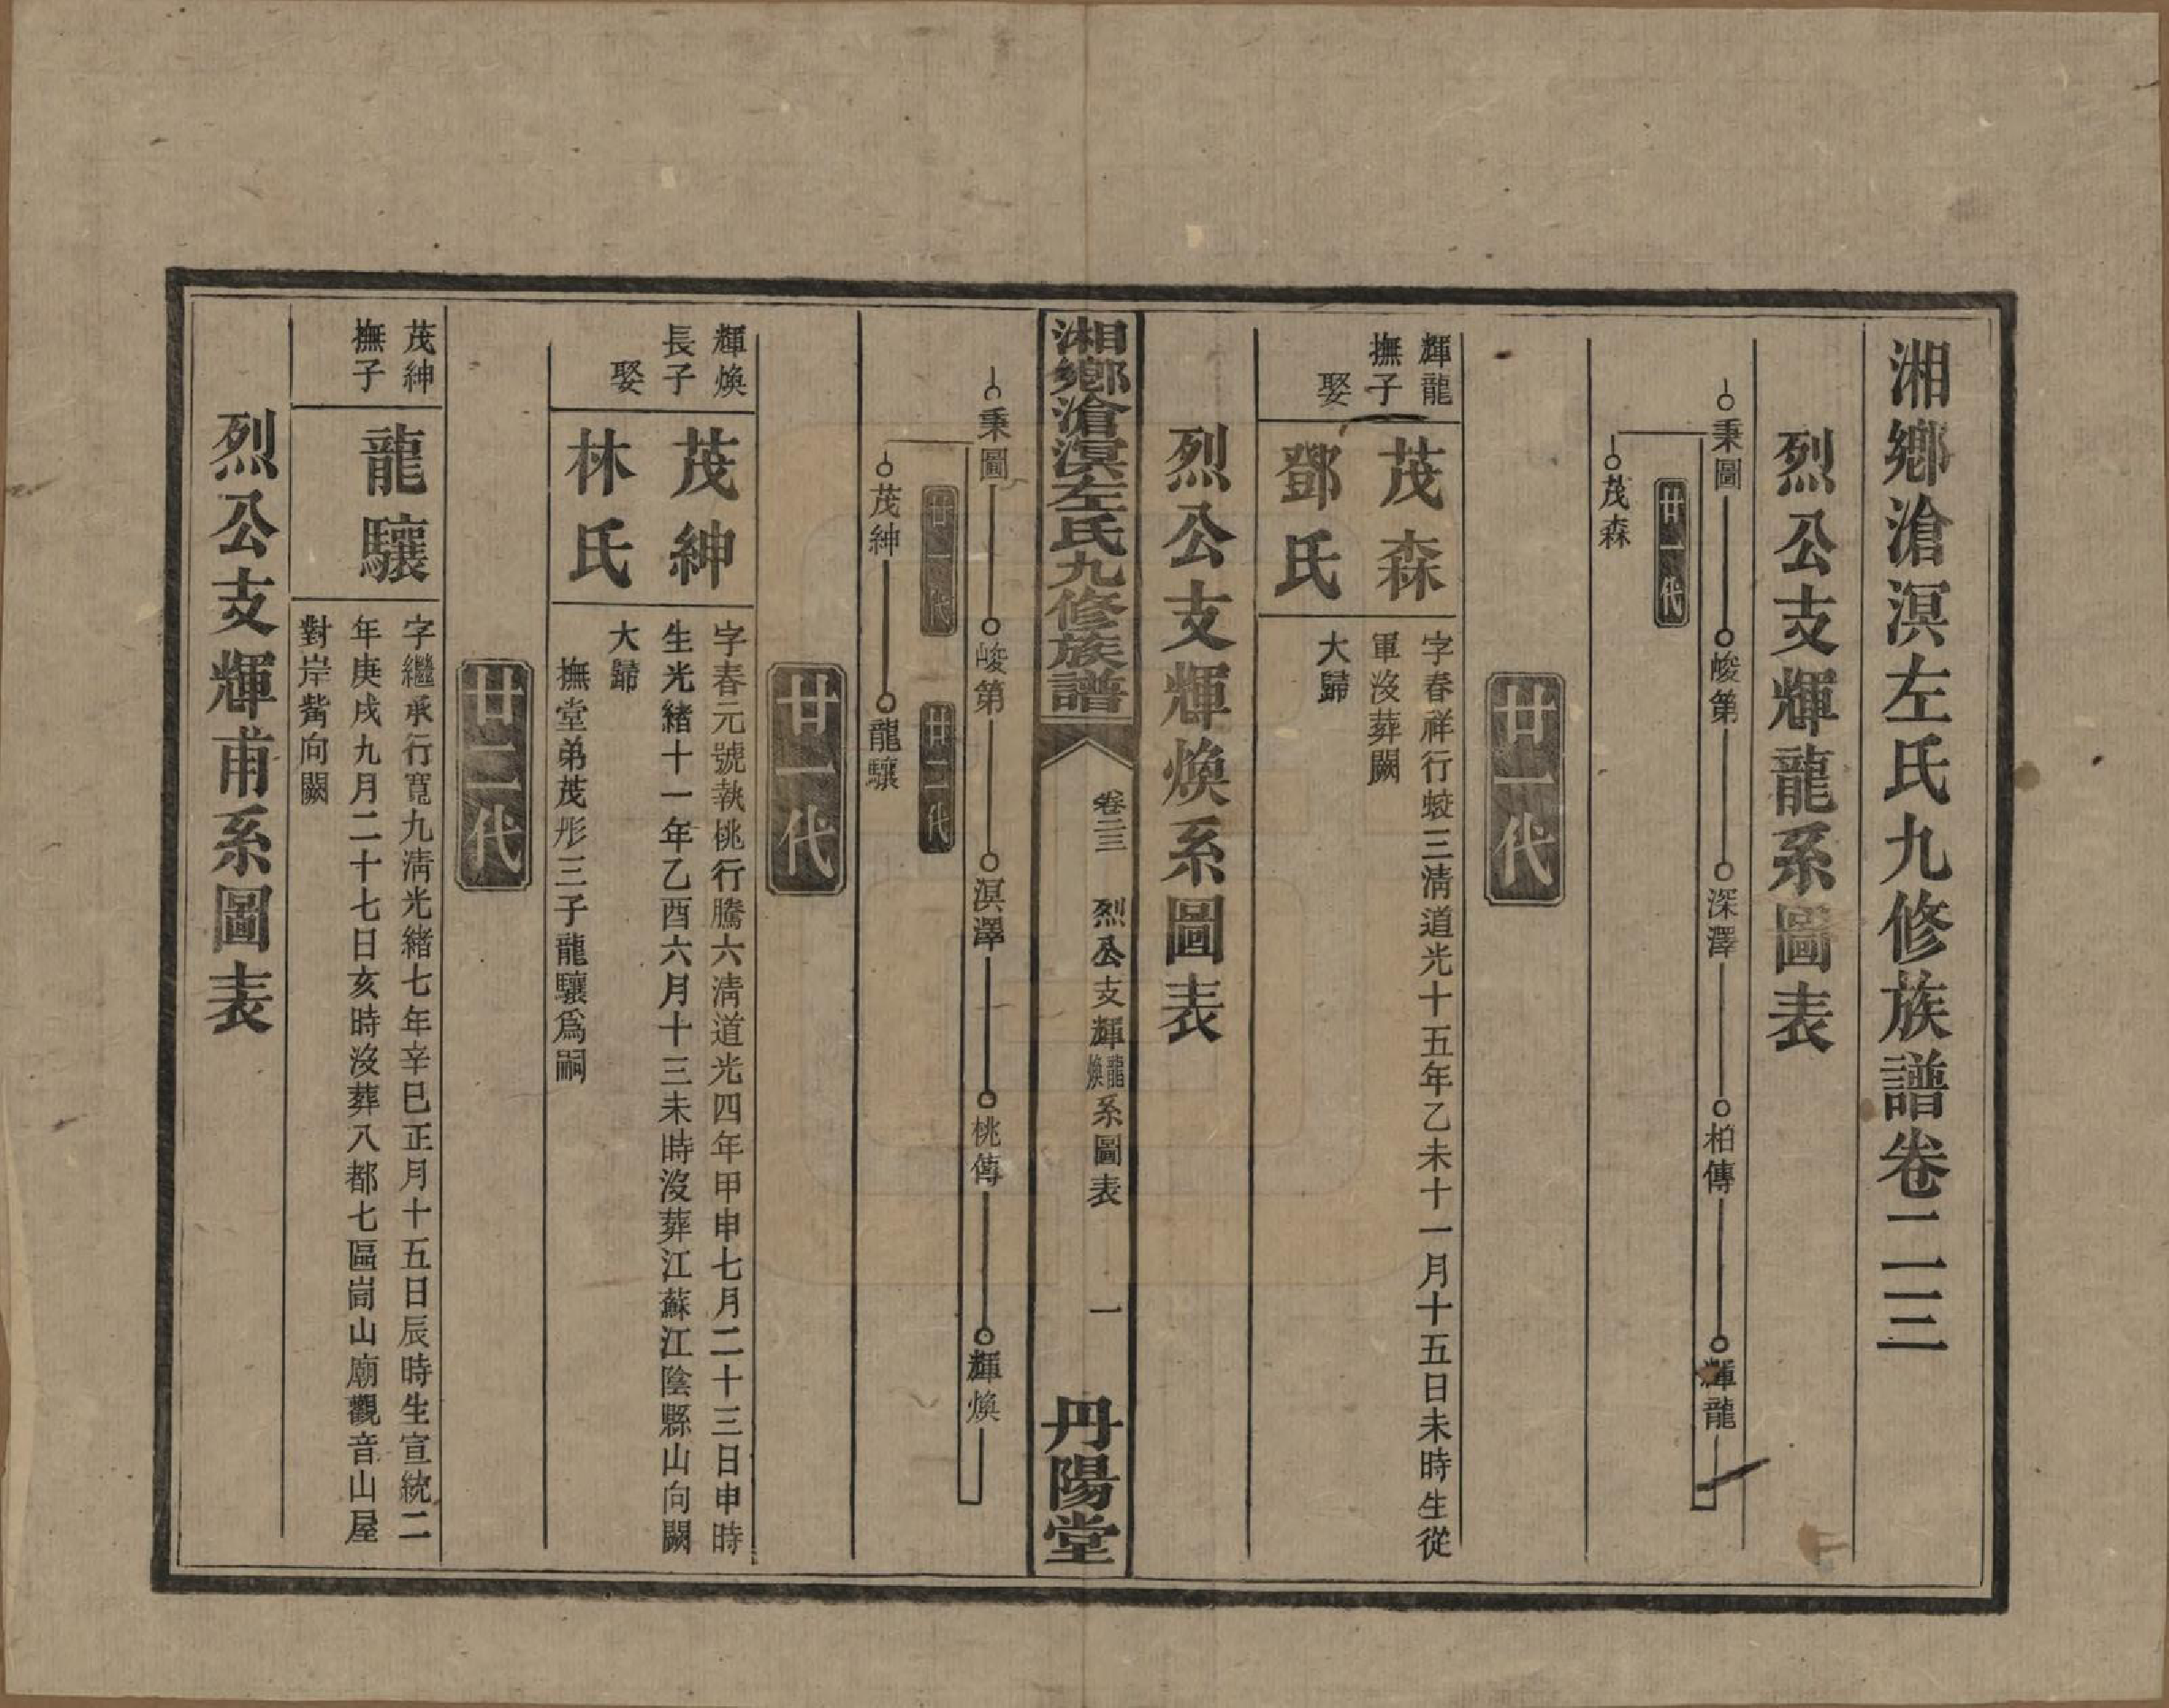 湘鄉滄溟左氏九修族譜卷二三
烈公支輝龍系圖表
秉圖 峻第 深澤 柏傳 輝龍
廿一代
茂森
廿一代
輝龍
撫子
娶
茂森
鄧氏
字春祥行蛟三清道光十五年乙未十一月十五日未時生從
軍沒葬闕
大歸
烈公支輝煥系圖表
湘鄉滄溟左氏九修族譜
卷二三 烈公支輝龍煥系圖表 一
丹陽堂
秉圖 峻第 溟澤 桃傳 輝煥
廿一代 廿二代
茂紳 龍驤
廿一代
輝煥
長子
娶
茂紳
林氏
字春元號執桃行騰六清道光四年甲申七月二十三日申時
生光緒十一年乙酉六月十三未時沒葬江蘇江陰縣山向闕
大歸
撫堂弟茂彤三子龍驤爲嗣
廿二代
茂紳
撫子
龍驤
字繼承行寬九清光緒七年辛巳正月十五日辰時生宣統二
年庚戌九月二十七日亥時沒葬八都七區崗山廟觀音山屋
對岸觜向闕
烈公支輝甫系圖表